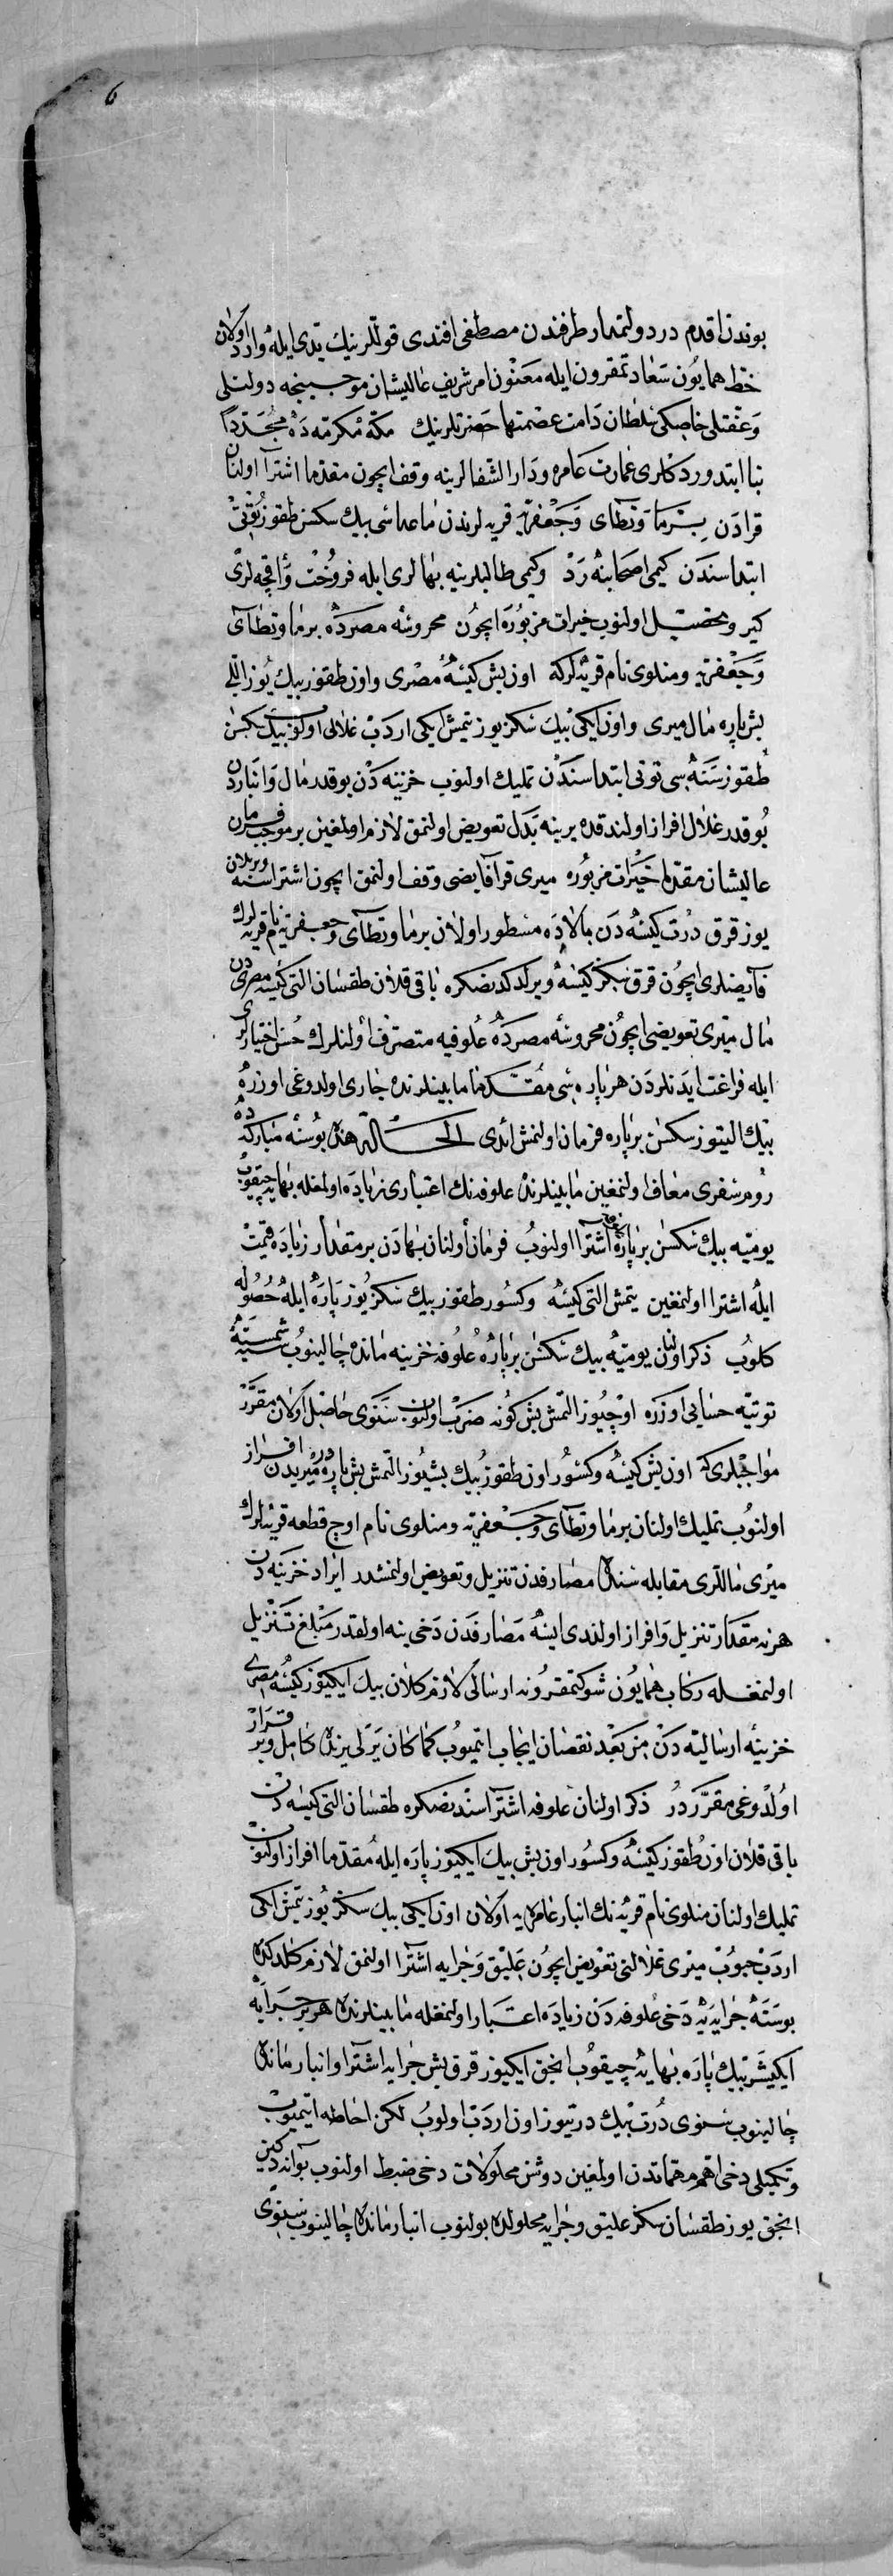 6
بوندن اقدم در دولتمدار طرفندن مصطفى افندى قوللرينك يدى ايله وارد اولان
خط همايون سعادتمقرون ايله معنون امر شريف عاليشان موجبنجه دولتلى
وعفتلى خاصكى سلطان دامت عصمتها حضرتلرينك مكه مكرمه ده مجددا
بنا ايتدوردكلرى عمارت عامره ودار الشفالرينه وقف ايچون مقدما اشترا اولنان
قرادن برما وتطاى وجعفريه قريه لرندن ماعداسى بيك سكسن طقوز توتى
ابتداسندن كيمى اصحابنه رد وكيمى طالبلرينه بهالرى ايله فروخت واقچه لرى
كير وتحصيل اولنوب خيرات مزبوره ايچون محروسه مصرده برما وتطاى
وجعفريه ومنلوى نام قريه لركه اون بش كيسه مصرى واون طقوز بيك يوز اللى
بش پاره مال ميرى واون ايكى بيك سكز يوز يتمش ايكى اردب غلالى اولوب بيك سكسن
طقوز سنه سى توتى ابتداسندن تمليك اولنوب خزينه دن بوقدر مال وانباردن
بوقدر غلال افراز اولندقده يرينه بدل تعويض اولنمق لازم اولمغين بر موجب فرمان
عاليشان مقدما خيرات مزبوره ميرى قرا فايضى وقف اولنمق ايچون اشتراسنه ويريلان
يوز قرق درت كيسه دن بالاده مسطور اولان برما وتطاى وجعفريه نام قريه لرك
فايضلرى ايچون قرق سكز كيسه ويرلدكدنصكره باقى قلان طقسان التى كيسه مصرىدن
مال ميرى تعويضى ايچون محروسه مصرده علوفيه متصرف اولنلرك حسن اختيارلرى
ايله فراغت ايدنلردن هر پاره سى مقدما مابينلرنده جارى اولدوغى اوزره
بيك التيوز سكسن بر پاره فرمان اولنمش ايدى الحالة هذه بو سنه مباركده
روم سفرى معاف اولنمغين مابينلرنده علوفه نك اعتبارى زياده اولمغله بهايه چيقوب
يوميه بيك سكسن بر پاره اشترا اولنوب فرمان اولنان بهادن بر مقدار زياده قيمت
ايله اشترا اولنمغين يتمش التى كيسه وكسور طقوز بيك سكز يوز پاره ايله حصوله
كلوب ذكر اولنان يوميه بيك سكسن بر پاره علوفه خزينه مانده چالينوب شمسيه
توتيه حسابى اوزره اوچيوز التمش بش كونه ضرب اولنوب سنوى حاصل اولان مقرر
مواجبلرى كه اون بش كيسه وكسور اون طقوز بيك بشيوز التمش بش پاره در ميريدن افراز
اولنوب تمليك اولنان برما وتطاى وجعفريه ومنلوى نام اوچ قطعه قريه لرك
ميرى ماللرى مقابله سنده مصارفدن تنزيل وتعويض اولنمشدر ايراد خزينه دن
هر نه مقدار تنزيل وافراز اولندى ايسه مصارفدن دخى ينه اولقدر مبلغ تنزيل
اولنمغله ركاب همايون شوكتمقرونه ارسالى لازم كلان بيك ايكيوز كيسه مصرى
خزينه ارساليه دن من بعد نقصان ايجاب ايتميوب كما كان يرلى يرنده كامل وبر قرار
اولدوغى مقرردر ذكر اولنان علوفه اشتراسندنصكره طقسان التى كيسه دن
باقى قلان اون طقوز كيسه وكسور اون بش بيك ايكيوز پاره ايله مقدما افراز اولنوب
تمليك اولنان منلوى نام قريه نك انبار عامره يه اولان اون ايكى بيك سكز يوز يتمش ايكى
اردب حبوب ميرى غلالنى تعويض ايچون عليق وجرايه اشترا اولنمق لازم كلدكده
بو سنه جرايه يه دخى علوفه دن زياده اعتبار اولنمغله مابينلرنده هر بر جرايه
ايكيشر بيك پاره بهايه چيقوب انجق ايكيوز قرق بش جرايه اشترا وانبار مانده
چالينوب سنوى درت بيك درتيوز اون اردب اولوب لكن احاطه ايتميوب
وتكميلى دخى اهم مهماتدن اولمغين دوشن محلولات دخى ضبط اولنوب بو آنه دكين
انجق يوز طقسان سكز عليق وجرايه محلولده بولنوب انبار مانده چالينوب سنوى